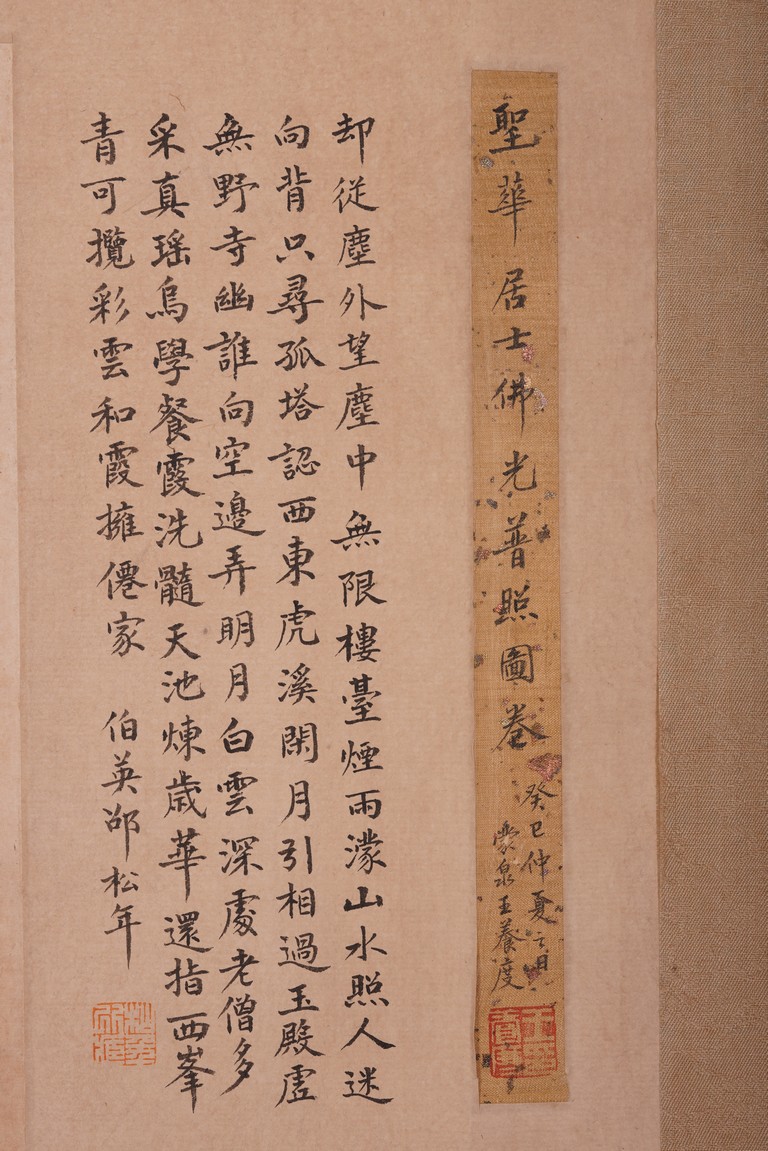 聖華居士佛光普照圖卷
癸巳仲夏之月
蒙泉王養度
却從塵外望塵中無限樓臺煙雨濛山水照人迷
向背只尋孤塔認西東虎溪閑月引相過玉殿虛
無野寺幽誰向空邊弄明月白雲深處老僧多
采真瑶鳥學餐霞洗髓天池煉歲華還指西峯
青可攬彩雲和霞擁僊家
伯英邵松年